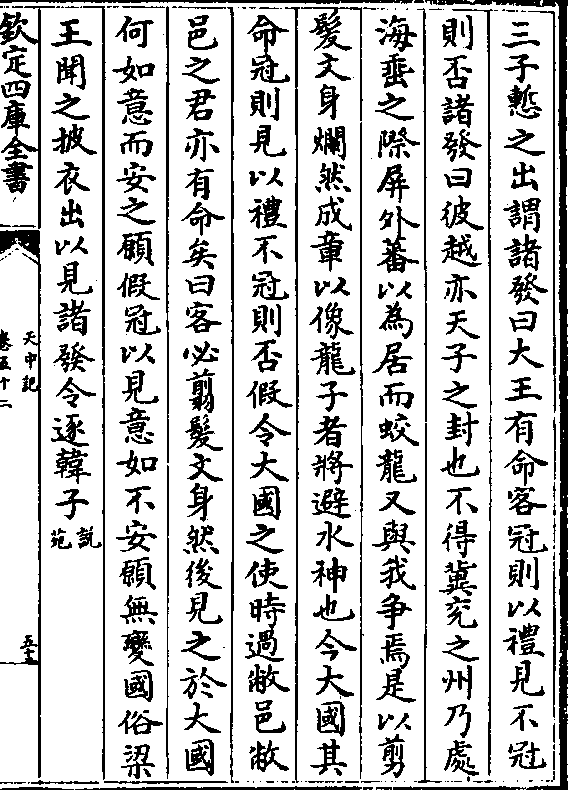 三子慙之出謂諸發曰大王有命客冠則以禮見不冠
則否諸發曰彼越亦天子之封也不得冀兖之州乃處
海垂之際屏外蕃以為居而蛟龍又與我争焉是以剪
髮文身爛然成章以像龍子者將避水神也今大國其
命冠則見以禮不冠則否假令大國之使時過敝邑敝
邑之君亦有命矣曰客必翦髮文身然後見之於大國
何如意而安之願假冠以見意如不安願無變國俗梁
王聞之披衣出以見諸發令逐韓子說苑
欽定四庫全書
天中記
卷五十二